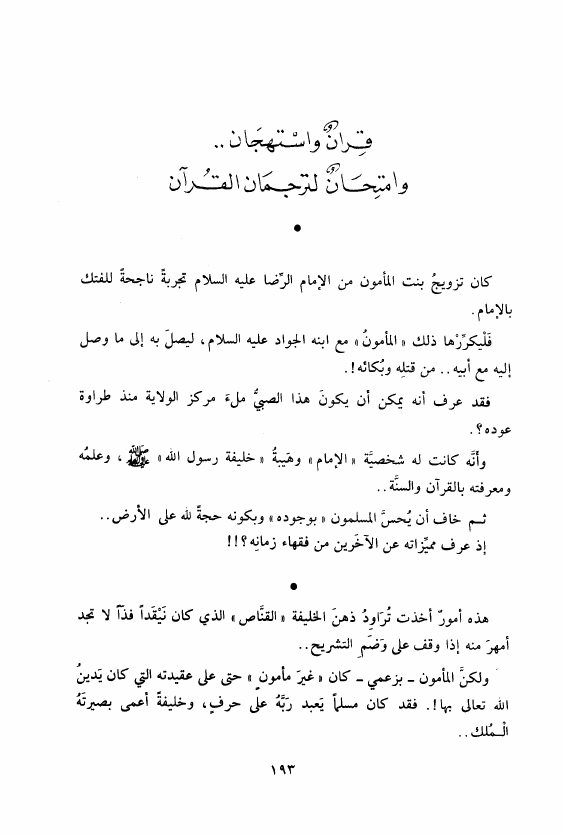 قِرانٌ واسْتهجَان ..
وامتِحَانٌ لترجمَان القُرآن
•
كان تزويجُ بنت المأمون من الإمام الرِّضا عليه السلام تجربةً ناجحةً للفتك
بالإمام.
فَلْيكرِّرْها ذلك «المأمونُ» مع ابنه الجواد عليه السلام، ليصلَ به إلى ما وصل
إليه مع أبيه.. من قتلِه وبُكائه!.
فقد عرف أنه يمكن أن يكونَ هذا الصبيُّ ملءَ مركز الولاية منذ طراوة
عوده؟.
وأنَّه كانت له شخصيَّة «الإمام» وهَيبةُ «خليفة رسول الله» ﷺ، وعلمُه
ومعرفته بالقرآن والسنَّة..
ثم خاف أن يُحسَّ المسلمون «بوجوده» وبكونه حجةً لله على الأرض..
إذ عرف مميِّزاته عن الآخَرين من فقهاء زمانِه؟!!
•
هذه أمورٌ أخذت تُرَاوِدُ ذهنَ الخليفة «القنَّاص» الذي كان نَيْقَداً فذّاً لا تجد
أمهرَ منه إذا وقف على وَضَمِ التشريح..
ولكنَّ المأمون - بزعمي - كان «غيرَ مأمونٍ» حتى على عقيدته التي كان يَدينُ
الله تعالى بها!. فقد كان مسلماً يَعبد رَبَّهُ على حرفٍ، وخليفةً أعمى بصيرتَهُ
الْمُلك..
١٩٣